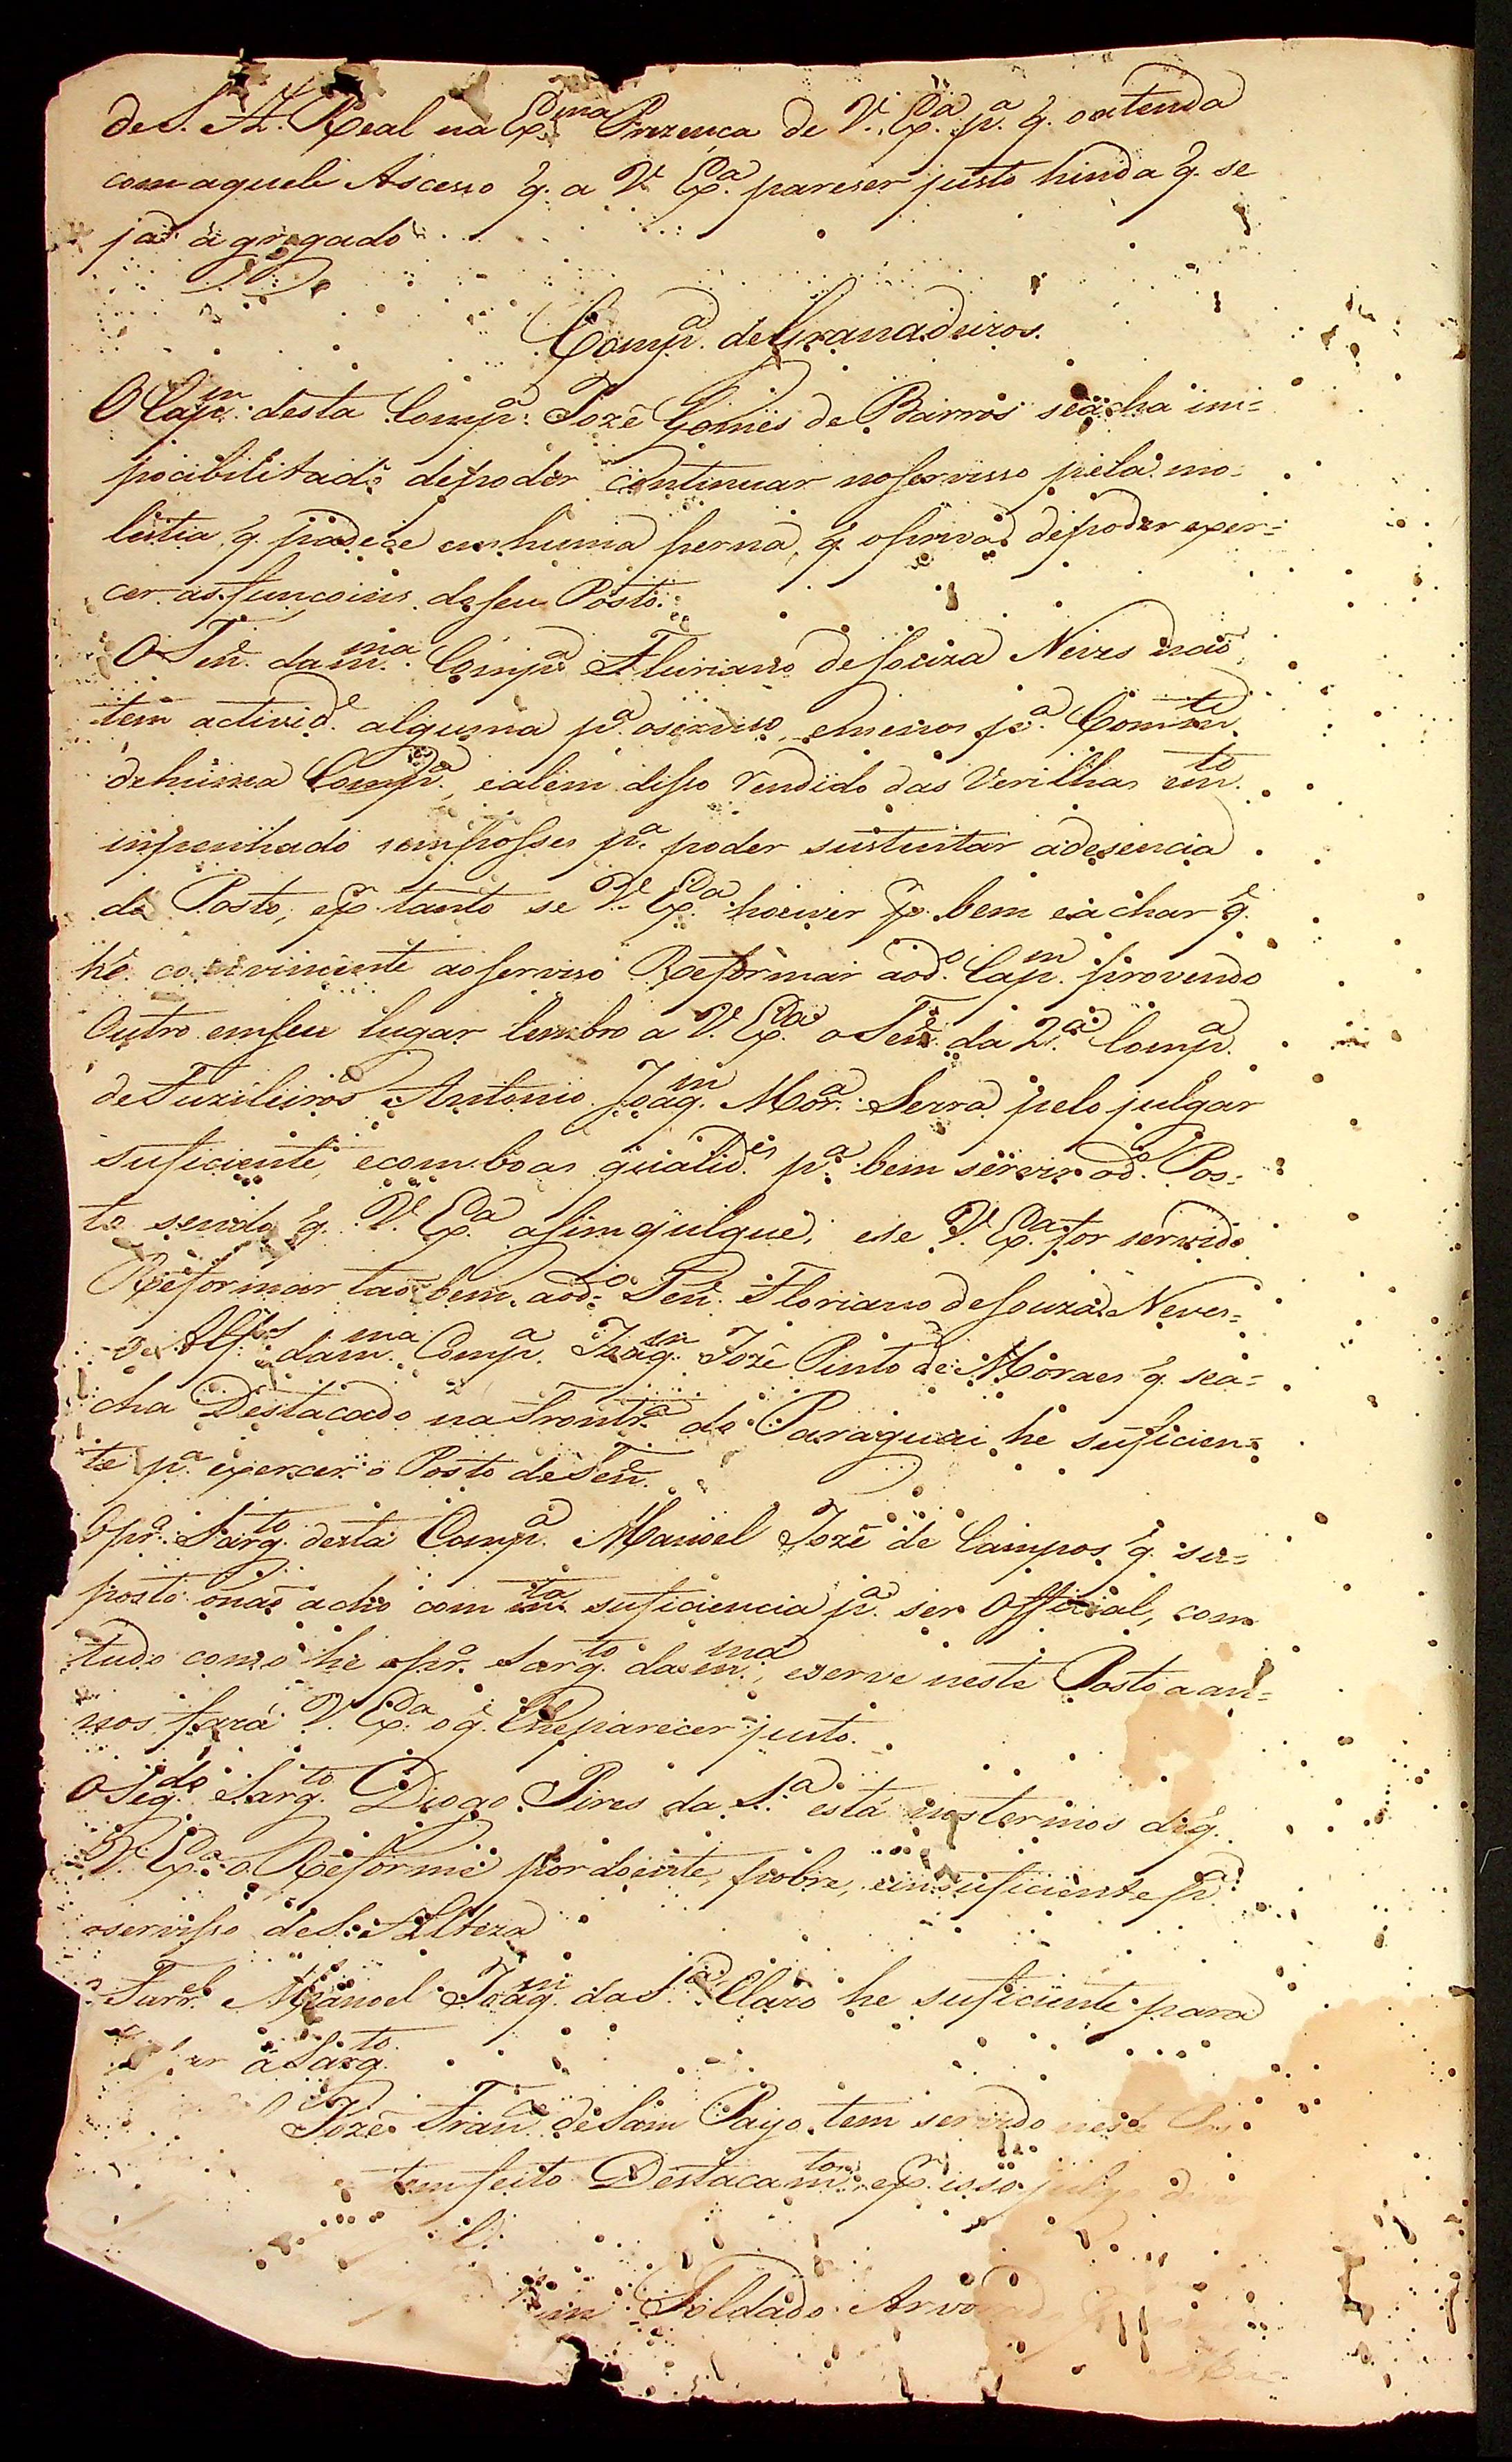 de S. A. Real na Ex.ma Prezença de V. Ex.a p.a q. o atenda
com aquele Ascesso q. a V. Ex.a pareser justo hinda q. se
ja agregado
Comp.a de Granadeiros.
O Cap.m desta Comp.a Jozê Gomes de Barros se acha im=
pocibilitado de poder continuar no servisso pela mo=
lestia q. padece em huma perna, q. o priva de poder exer=
cer as funçoins do seu Posto.
O Ten.e da m.ma Comp.a Fluriano de Souza Neves naõ
tem activid.e alguma p.a o serviso, e menos p.a Com.te
de huma Comp.a, e alem disso rendido das Verilhas m.to
inpenhado sem posses p.a poder sustentar a desencia
do Posto, e p. tanto se V. Ex.a houver p. bem e achar q.
hé conviniente ao serviso Reformar ao d.o Cap.m provendo
Outro em seu lugar lembro a V. Ex.a o Ten.e da 2.a Comp.a
de Fuzileiros Antonio Joaq.m Mor.a Serra pelo julgar
suficiente, e com boas qualid.es p.a bem servir o d.o Pos=
to sendo q. V. Ex.a asim gulgue, e se V. Ex.a for servido
Reformar taõbem ao d.o Ten.e Floriano de Souza Neves=
o Alf.es da m.ma Comp.a Joaq.m Jozê Pinto de Moraes q. sea=
cha Destacado na Front.ra do Paraguai he suficien=
te p.a exercer o Posto de Ten.e
O pr.o Sarg.to desta Comp.a Manoel Jozê de Campos q. su=
posto o naõ acho com m.ta suficiencia p.a ser Official, com
tudo como he o pr.o Sarg.to da m.ma, e serve neste Posto a an=
nos fará V. Ex.a o q. lhe parecer justo.
O Seg.do Sarg.to Diogo Pires da S.a está nos termos de q.
V. Ex.a o Reforme por doente, pobre, e insuficiente p.a
o servisso de S. Alteza
Furr.el Manoel Joaq.m da S.a Claro he suficiente para
a Sarg.to
Jozê Fran.co de Sam Payo tem servido neste
tem feito Destacam.tos e p. isso julgo
Soldado Arvo